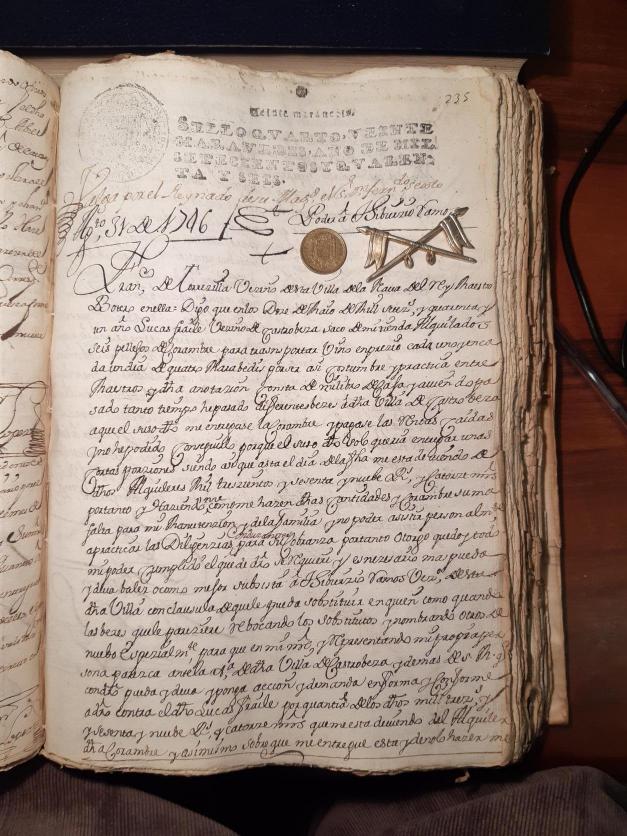 235
Veinte maravedis.
SELLO QVARTO, VEINTE
MARAVEDIS, AÑO DE MIL
SETECIENTOS Y QVAREN
TA Y SEIS.
por el Reynado de su Magd. el Sr. Dn. Fern.do sexto
Ag.to 31 de 1746 Poder a Ramos
Fran.co de Vezino desta Villa de la Nava del Rey Maestro
Botero en ella = Digo que en los Doze de Maio de Mill setez.s y quarenta y
un año Lucas fraile Vezino de Castrobeza saco de mi tienda Alquilados
seis pellejos de corambre para transportar Vino en prezio cada uno
cada un dia de quatro Marabedis por ser asi costumbre y practica entre
Maestros y dha anotazion consta de mi libro de Caja y auiendo pa
sado tanto tiempo he pasado diferentes bezes a dha Villa de Castrobeza
a que el suso dho me entregase la corambre y pagase las Rentas
y no he podido conseguirlo porque el suso dho solo queria entregar unas
cortas porziones siendo asi que asta el dia de la fha me esta deuiendo de
dhos Alquileres Mil trescientos y sesenta y nuebe Rs. y Catorze mrs
por tanto y Haziendome como me hazen dhas Cantidades y corambre suma
falta para mi Manutenzion y de la familia y no poder asistir personalm.te
a practicar las Diligenzias para su cobranza por tanto otorgo que doy todo
mi poder cumplido el que de dro. se requiere y es nezesario mas pueda
y deua baler como mejor subsista a Ramos Vez.o desta
dha Villa con clausula de que le pueda sobstituir en quien como y quando
las bezes que le pareziere rebocando los sobstitutos y nombrando otros de
nuebo Espezialm.te para que en mi nre. y Representando mi propia per
sona parezca ante la Jus.a de dha Villa de Castrobeza y demas de S. M. q
con dro pueda y deua y ponga accion y demanda en forma y conforme
a dro contra el dho Lucas fraile por quantia de los dhos mil trez.s
y sesenta y nuebe Rs. y catorze mrs que me esta deuiendo del Alquiler
de dha Corambre y asimismo sobre que me entregue esta y de no lo hazer me